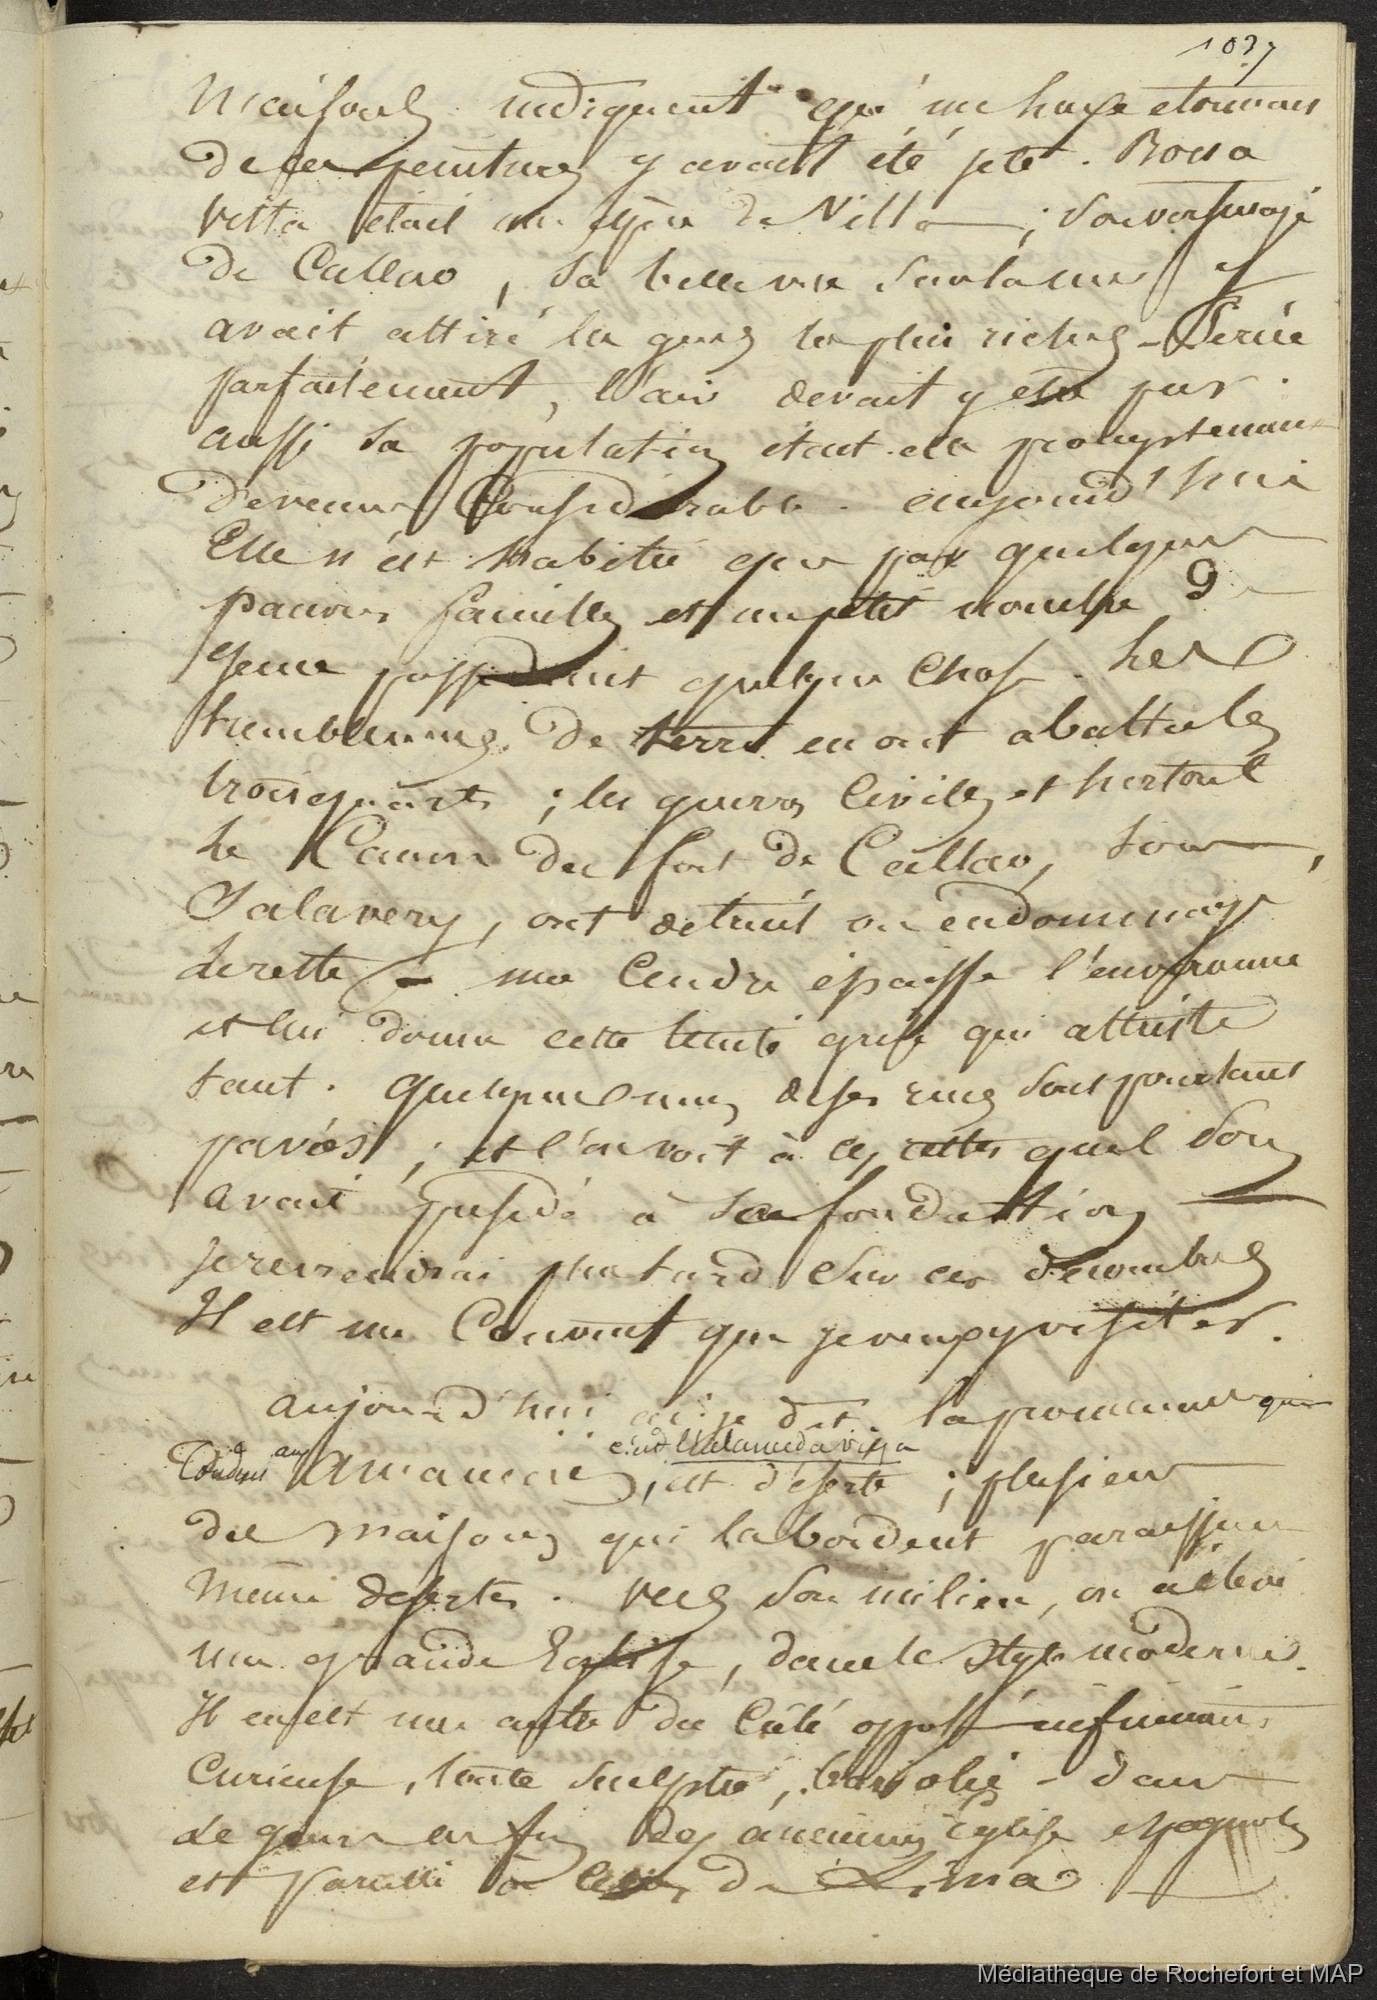 1037
maisons indiquent qu'un luxe étonnant
de ces peintures y avait été jeté. Bona
vista était une espèce de Villa ; Son voisinage
de Callao, Sa belle vue Sur la mer y
avait attiré les gens les plus riches - Percée
parfaitement, l'air devait y être pur.
aussi Sa population était elle promptement
devenue Considérable. aujourd'hui
Elle n'est habitée que par quelques
pauvres familles et un petit nombre de
gens possédant quelque chose. Les
tremblements de terre en ont abattu les
trois quarts ; les guerres Civiles et surtout
le Canon du fort de Callao, Sous
Salavery, ont détruit ou endommagé
le reste - une Cendre épaisse l'environne
et lui donne cette teinte grise qui attriste
tant. Quelques unes de ses rues Sont pourtant
pavées ; et l'on voit à ces restes quel Soin
avait présidé à Sa fondation
je reviendrai plus tard Sur ces décombres
Il est un Couvent que je veux y visiter.
aujourd'hui, ai-je dit, la promenade qui
Conduit aux amancaes, c'est l'alameda vieja
est déserte ; plusieurs
des maisons qui la bordent paraissent
même désertes. vers Son milieu, on a bâti
une grande Eglise, dans le Style moderne.
Il en est une autre du Côté opposé infiniment
Curieuse, toute Sculptée, bariolée - dans
le genre enfin des anciennes Eglises espagnoles
et pareille à Celles de Lima
Médiathèque de Rochefort et MAP